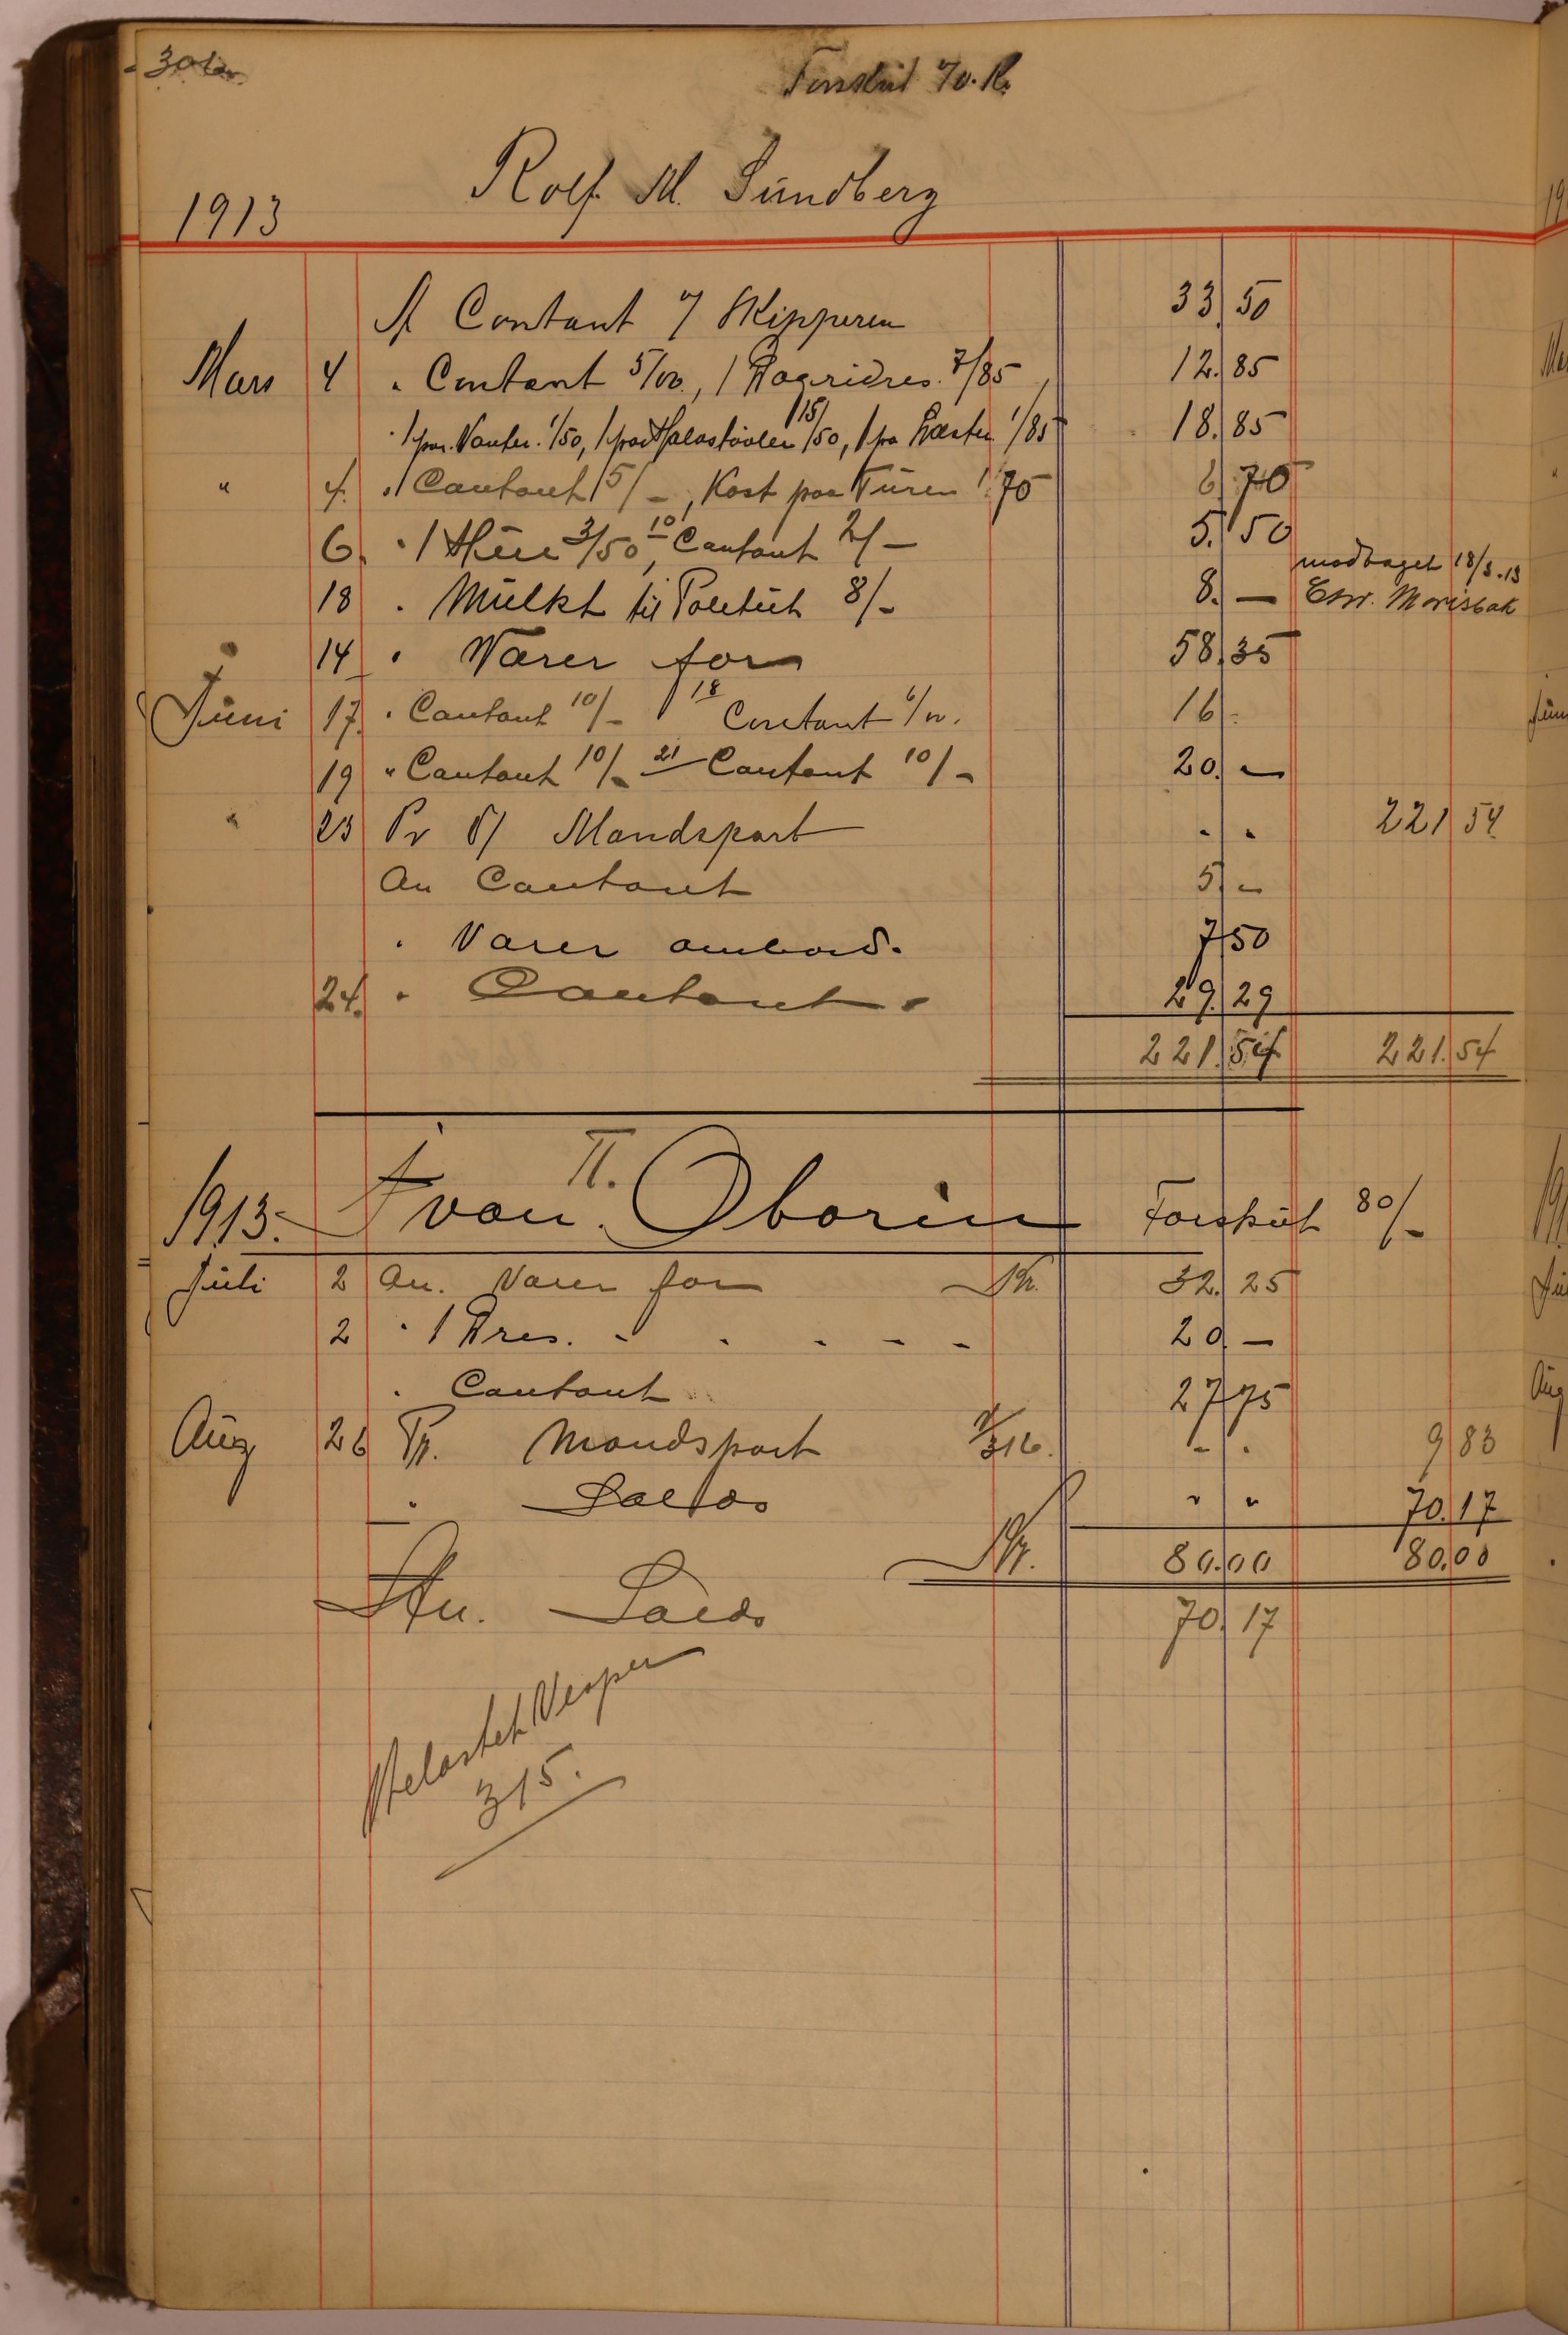 Forskud 70. Kr.
Rolf M. Sundberg
1913
A Contant 7 Skipperen 33,50
Mars 4 " Contant 5/00, 1 7/85 12.85
" 1 par. Vanter. 1/50, 1 par 15/50, 1 pa Læster 1/85 18.85
" 4. " Contant 5/-, Kost paa Turen 1/70 6,70
6. " 1 Hue 3/50, 10 Contant 2/- 5.50
18 " Mulkt til Politiet 8/- 8. — modtaget 18/3.13
Chr. Morisbak
14 " Varer for 58,35
Juni 17. " Contant 10/- 18 Contant 6/00. 16 -
19 " Contant 10/- 21 Contant 10/- 20. —
" 23 Pr Mandspart " " 221 54
An Contant 5, -
" Varer ombord. 7,50
24. " Contant " 29.29
221.54 221.54
II.
1913. Ivan Oborin Forskud 80/-
Juli 2 An. Varer for Kr. 32.25
2 " 1 Dres. - - - - - 20 —
" Contant 27,75
Aug 26 Pr. Mandspart 316. " " 9 83
" Saldo " " 70.17
Kr. 80.00 80.00
An. Saldo 70.17
Belastet Vesper
315.